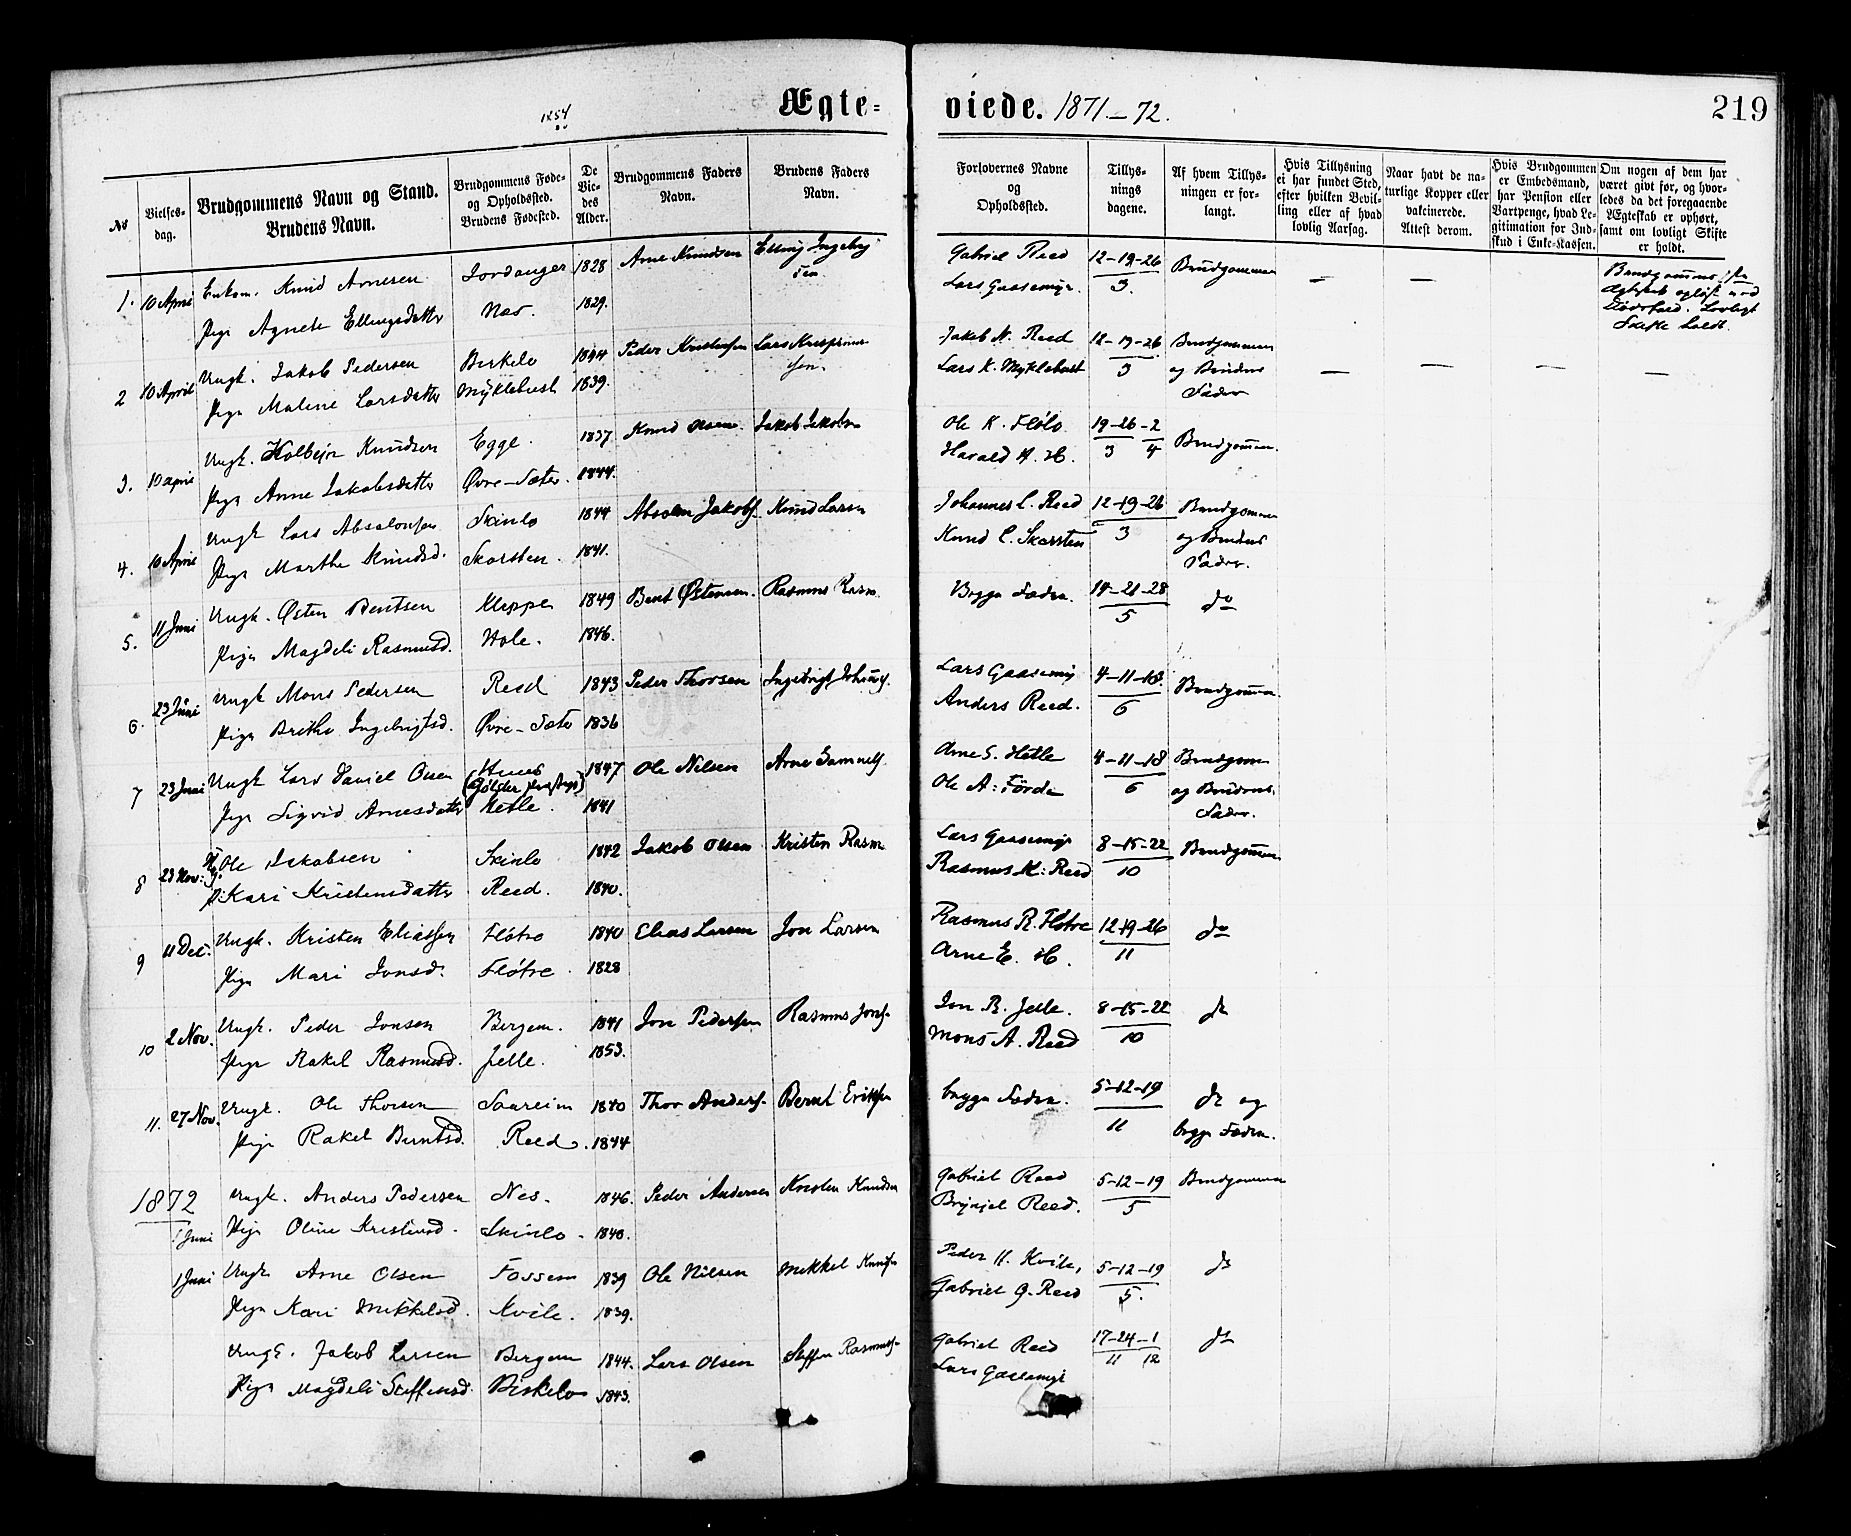 1854
Ægte-
viede. 1871–72.
219
No
Vielses-
dag.
Brudgommens Navn og Stand.
Brudens Navn.
Brudgommens Føde-
og Opholdssted.
Brudens Fødested.
De
Vie-
des
Alder.
Brudgommens Faders
Navn.
Brudens Faders
Navn.
Forlovernes Navne
og
Opholdssted.
Tillys-
nings
dagene.
Af hvem Tillys-
ningen er for-
langt.
Hvis Tillysning
ei har fundet Sted,
efter hvilken Bevil-
ling eller af hvad
lovlig Aarsag.
Naar havt de na-
turlige Kopper eller
vakcinerede.
Attest derom.
Hvis Brudgommen
er Embedsmand,
har Pension eller
Vartpenge, hvad Le-
gitimation for Ind-
skud i Enke-Kassen.
Om nogen af dem har
været givt før, og hvor-
ledes da det foregaaende
Ægteskab er ophørt,
samt om lovligt Skifte
er holdt.
1. 10 April Enkem. Knud Arnesen Jordanger 1828 Arne Knudsen Elling Ingebrg Gabriel Reed 12–19–26 Brudgommen — —
sen
Pige Agnete Ellingsdatter Nes. 1829. Lars Gaasemyr. 3.
Ægteskab opløst ved
Dødsfald. Lovligt
Skifte holdt.
2 10 April Ungk. Jakob Pedersen Birkelo 1844 Peder Kristensen Lars Jakob N. Reed 12–19–26 Brudgommen
Pige Malene Larsdatter Myklebust 1839. Lars K. Myklebust 3 og Brudens — — — —
Fader
3. 10 April Ungk. Kolbejn Knudsen Egge. 1837. Knud Olsen. Jakob Jakobs Ole K. Fløto 19–26–2 Brudgommen.
Pige Anne Jakobsdatter Øvre-Sæter. 1844. Harald A. H. 3 4
4. 10 April Ungk Lars Absalonsen Skinlo 1844 Absalon Jakobs. Knud Larsen Johannes L. Reed 12–19–26 Brudgommen
Pige Marthe Knudsd. Skarsten. 1841. Knud L. Skarsten 3 og Brudens
Fader.
5. 11 Juni Ungk. Østen Bentsen Kleppe 1849 Bent Østensen. Rasmus Rasm. Begge Fædre. 14–21–28 do
Pige Magdeli Rasmusd. Hole. 1846. 5
6. 23 Juni Ungk Mons Pedersen Reed 1843 Peder Thorsen Ingebrigt Johans. Lars Gaasemyr 4–11–18. Brudgommen
Pige Brithe Ingebrigtsd. Øvre-Sæter 1836 Anders Reed. 6
7 23 Juni Ungk Lars Daniel Olsen 1847 Ole Nilsen Arne Samuels. Arne S. Hetle 4–11–18 Brudgommen
Pige Sigrid Arnesdatter Hetle. 1841 Ole A: Førde 6 og Brudens
Fader.
8 23 Nov: Ole Jakobsen Skinlo 1842 Jakob Olsen Kristen Rasm Lars Gaasemyr 8–15–22 Brudgommen
P. Kari Kristensdatter Reed. 1840. Rasmus K: Reed 10
9 11 Dec: Ungk. Kristen Eliassen Fløtre 1840 Elias Larsen Jon Larsen Rasmus R. Fløtre 12–19–26 do
Pige Mari Jonsd. Fløtre. 1828 Arne E. H. 11
10 2 Nov. Ungk. Peder Jonsen Bergem. 1841 Jon Pedersen Rasmus Jons. Jon R. Jelle. 8–15–22 do
Pige Rakel Rasmusd. Jelle. 1853. Mons A. Reed 10
11. 27 Nov. Ungk. Ole Thorsen Saareim 1840 Thor Anders. Bernt Eriksen begge Fædre. 5–12–19 do og
Pige Rakel Berntsd. Reed. 1844 11 begge Fædre.
1872 Ungk. Anders Pedersen Nes. 1846. Peder Andersen Kristen Knudsen Gabriel Reed 5–12–19 Brudgommen
1 Juni Pige Oline Kristensd. Skinlo. 1840. Brynjel Reed. 5
1 Juni Ungk Arne Olsen Fossem 1839 Ole Nilsen Mikkel Knuds. Peder M. Kvile, 5–12–19 do
Pige Kari Mikkelsd. Kvile. 1839. Gabriel G. Reed 5.
Ungk. Jakob Larsen Bergem 1844. Lars Olsen Steffen Rasmuss. Gabriel Reed 17–24–1 do
Pige Magdeli Steffensd. Birkelo 1843. Lars Gaasemyr 11 12